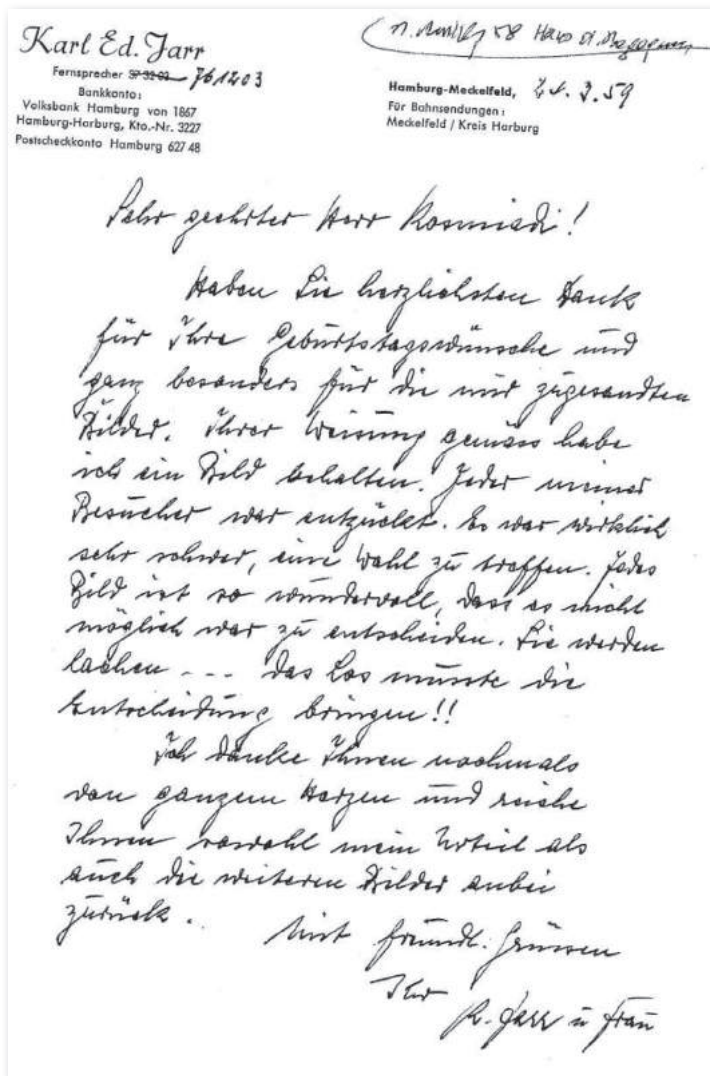 Karl Ed. Jarr
Fernsprecher 37 32 02 761203
Bankkonto:
Volksbank Hamburg von 1867
Hamburg-Harburg, Kto.-Nr. 3227
Postscheckkonto Hamburg 627 48
58 Haus d.
Hamburg-Meckelfeld, 24. 3. 59
Für Bahnsendungen:
Meckelfeld / Kreis Harburg
Sehr geehrter Herr Kosmiadi!
Haben Sie herzlichsten Dank
für Ihre Geburtstagswünsche und
ganz besonders für die mir zugesandten
Bilder. Ihrer Weisung gemäss habe
ich ein Bild behalten. Jeder meiner
Besucher war entzückt. Es war wirklich
sehr schwer, eine Wahl zu treffen. Jedes
Bild ist so wundervoll, dass es nicht
möglich war zu entscheiden. Sie werden
lachen --- das Los musste die
Entscheidung bringen!!
Ich danke Ihnen nochmals
von ganzem Herzen und reiche
Ihnen sowohl mein Urteil als
auch die weiteren Bilder anbei
zurück.
Mit freundl. Grüssen
Ihr
K. Jarr u Frau